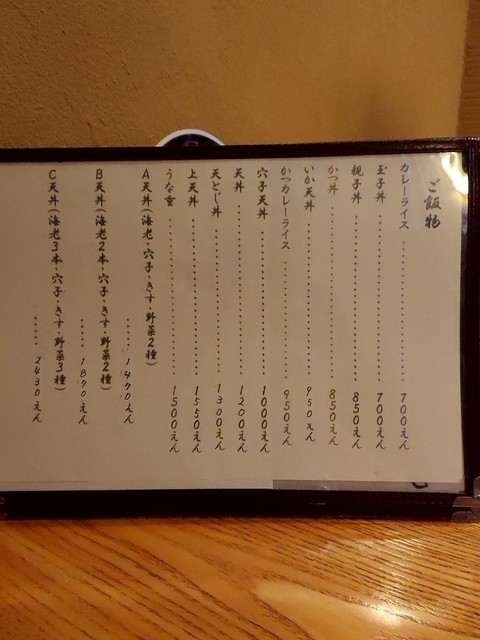 ご飯物
カレーライス 700えん
玉子丼 700えん
親子丼 850えん
かつ丼 850えん
いか天丼 950えん
かつカレーライス 950えん
穴子天丼 1000えん
天丼 1200えん
天とじ丼 1300えん
上天丼 1550えん
うな重 1500えん
A天丼(海老・穴子・きす・野菜2種) 1490えん
B天丼(海老2本・穴子・きす・野菜2種) 1890えん
C天丼(海老3本・穴子・きす・野菜3種) 2430えん